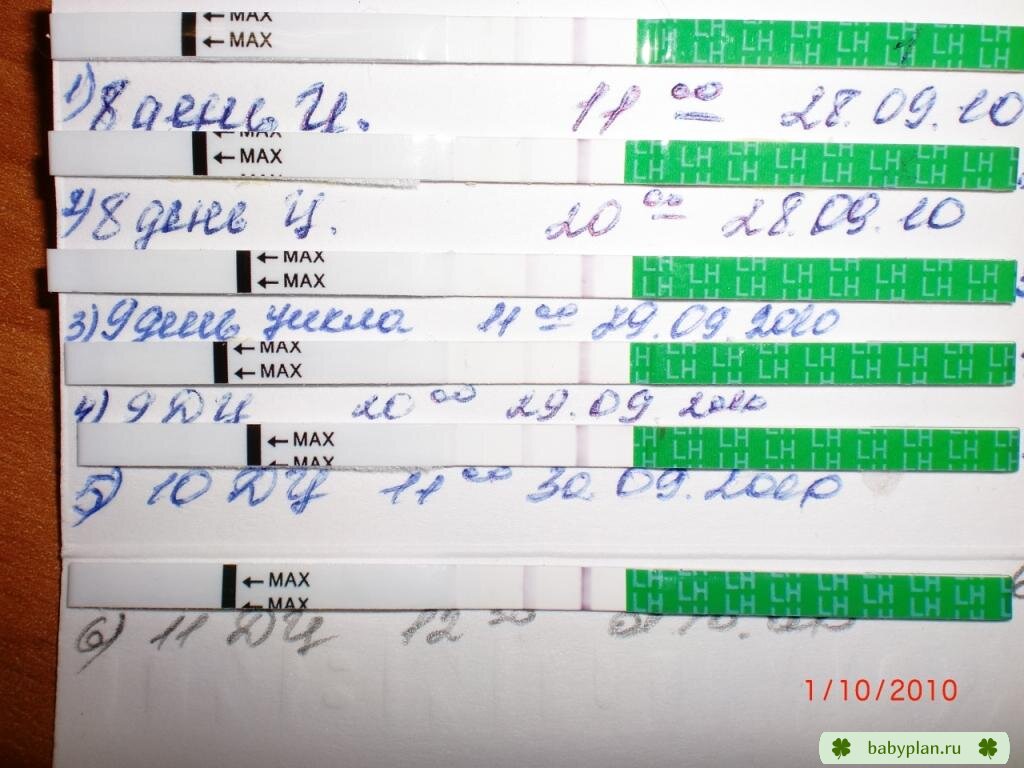 ← MAX
← MAX
LH LH LH LH LH LH LH LH
1) 8 день Ц. 11 00 28.09.10
← MAX
← MAX
LH LH LH LH LH LH LH LH
2) 8 день Ц. 20 00 28.09.10
← MAX
← MAX
LH LH LH LH LH LH LH LH
3) 9 день цикла 11 00 29.09.2010
← MAX
← MAX
LH LH LH LH LH LH LH LH
4) 9 ДЦ 20 00 29.09 2010
← MAX
← MAX
LH LH LH LH LH LH LH LH
5) 10 ДЦ 11 00 30.09.2010
← MAX
← MAX
LH LH LH LH LH LH LH LH
6) 11 ДЦ 12 00
1/10/2010
babyplan.ru